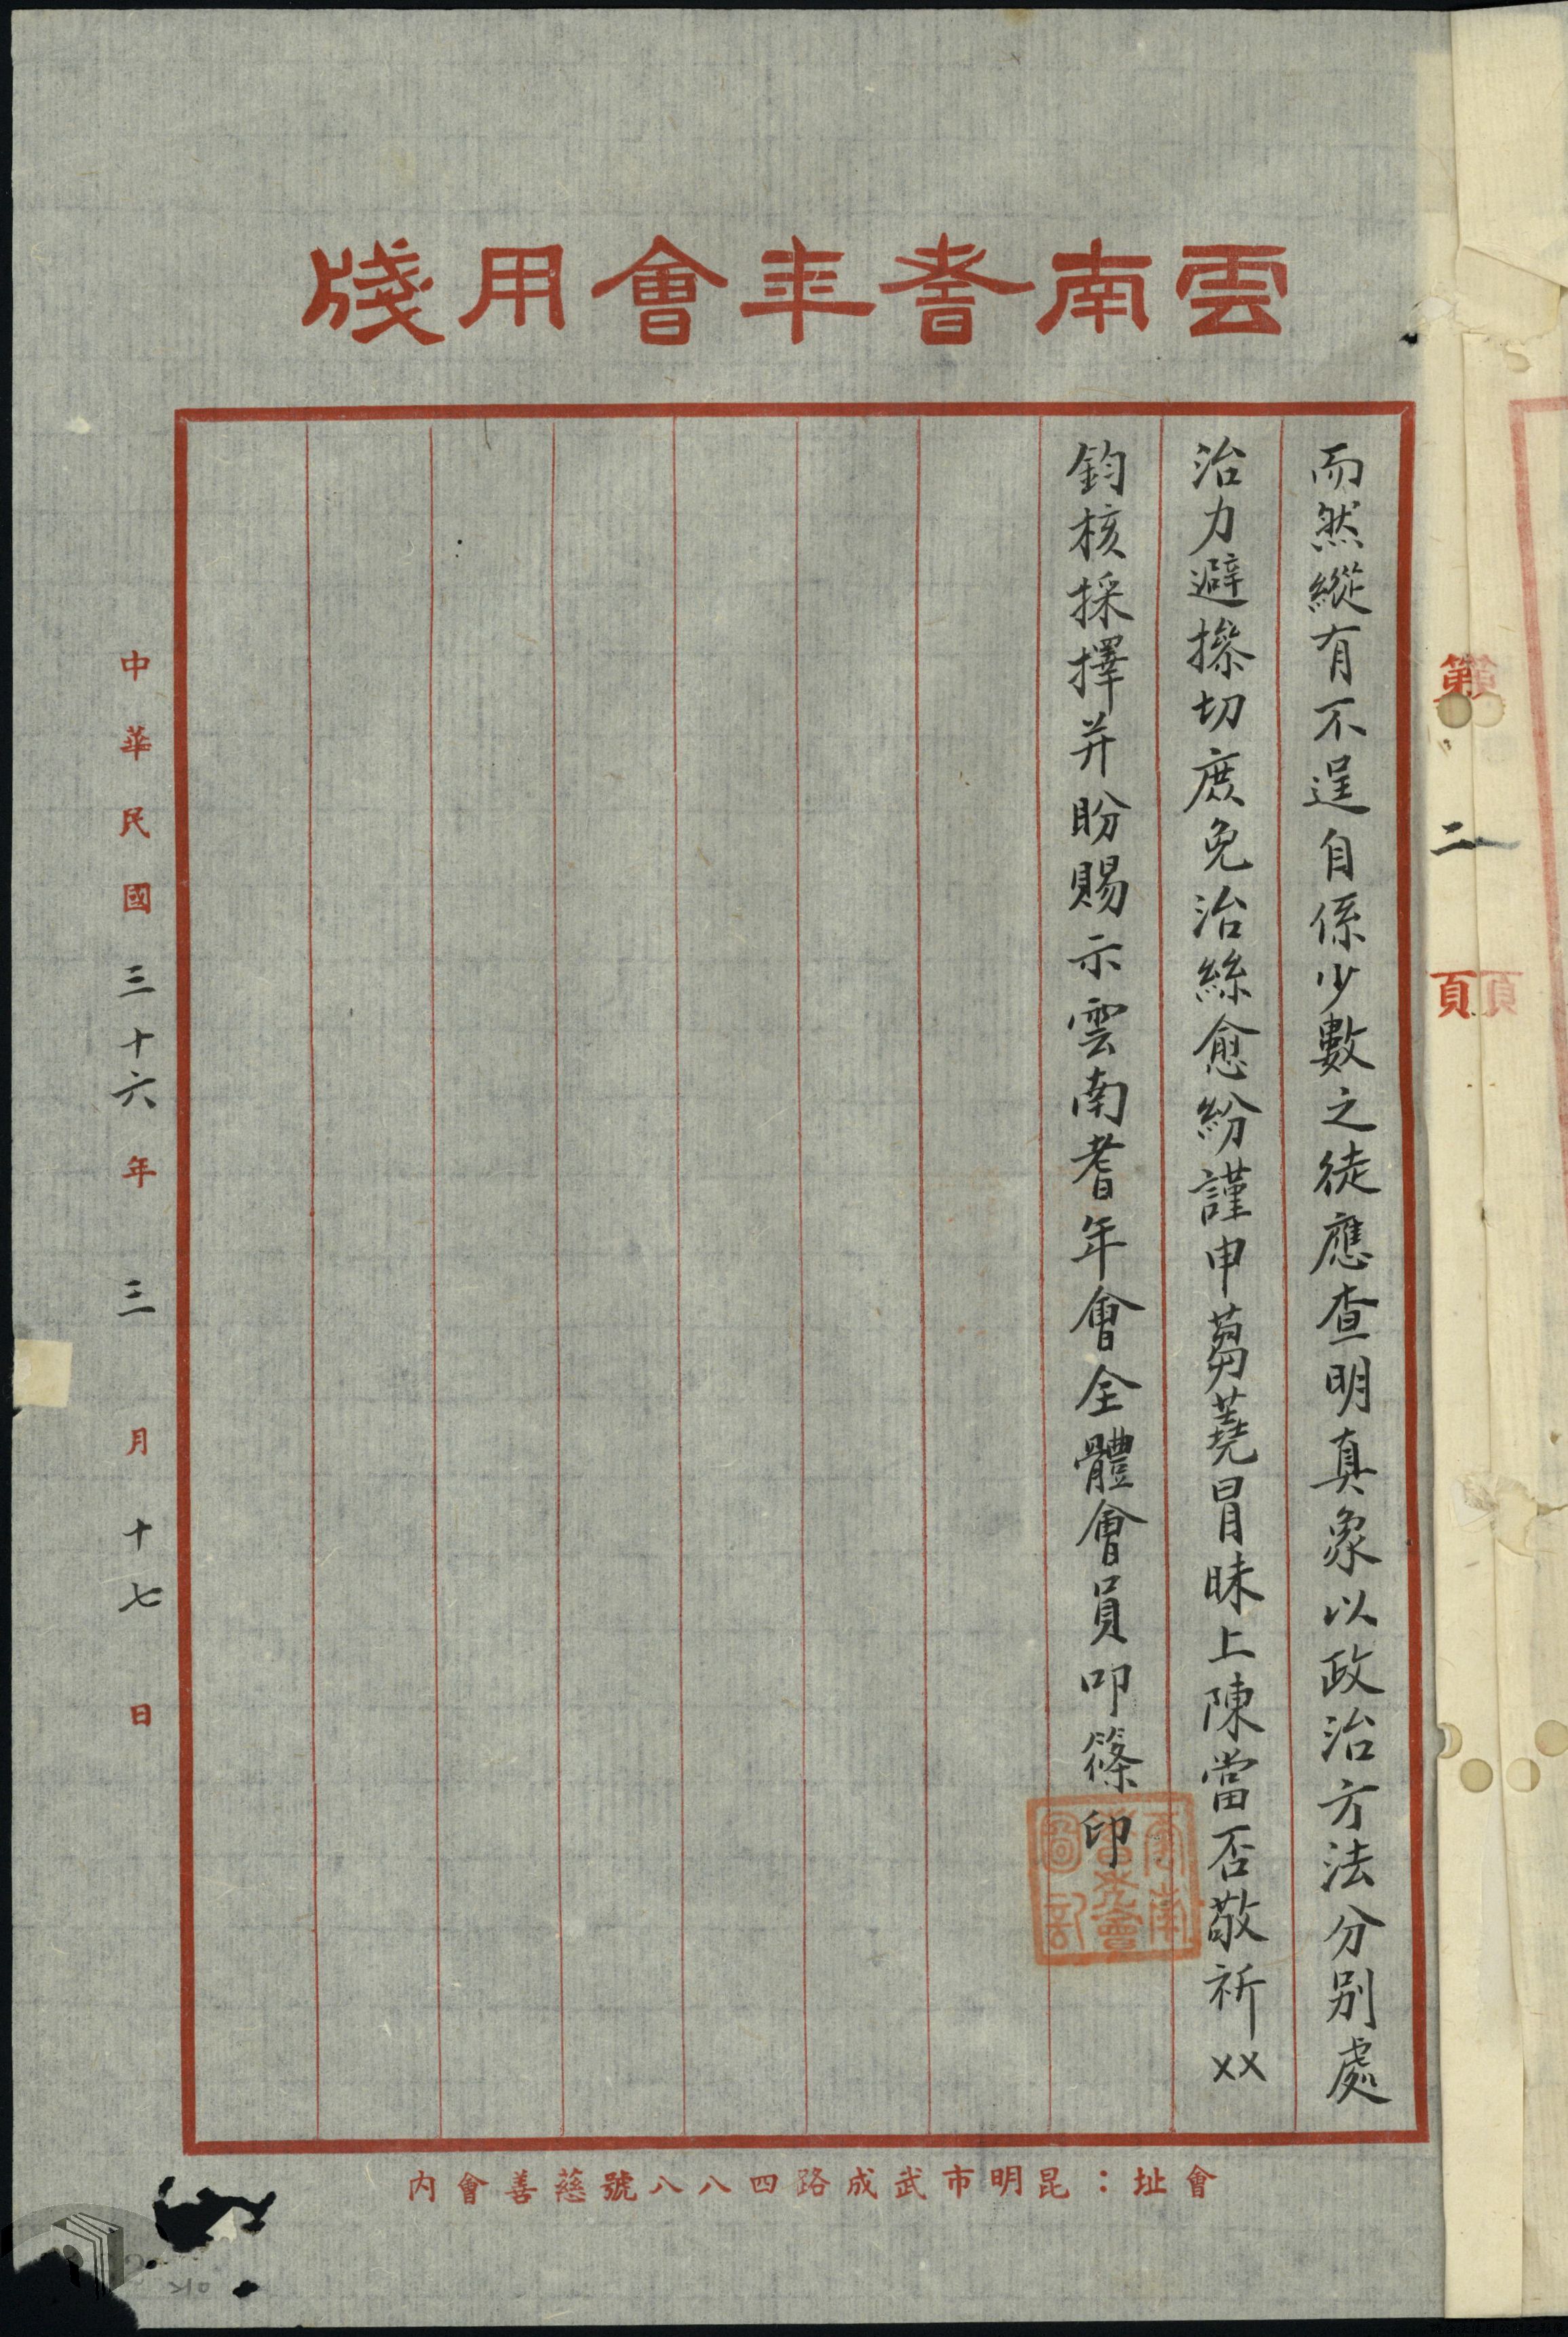 雲南耆年會用牋
而然縱有不逞自係少數之徒應查明真象以政治方法分別處
治力避操切庶免治絲愈紛謹申蒭蕘冒昧上陳當否敬祈××
鈞核採擇并盼賜示雲南耆年會全體會員叩篠印
雲南
耆年會
圖記
中華民國三十六年三月十七日
會址：昆明市武成路四八八號慈善會內
第二頁